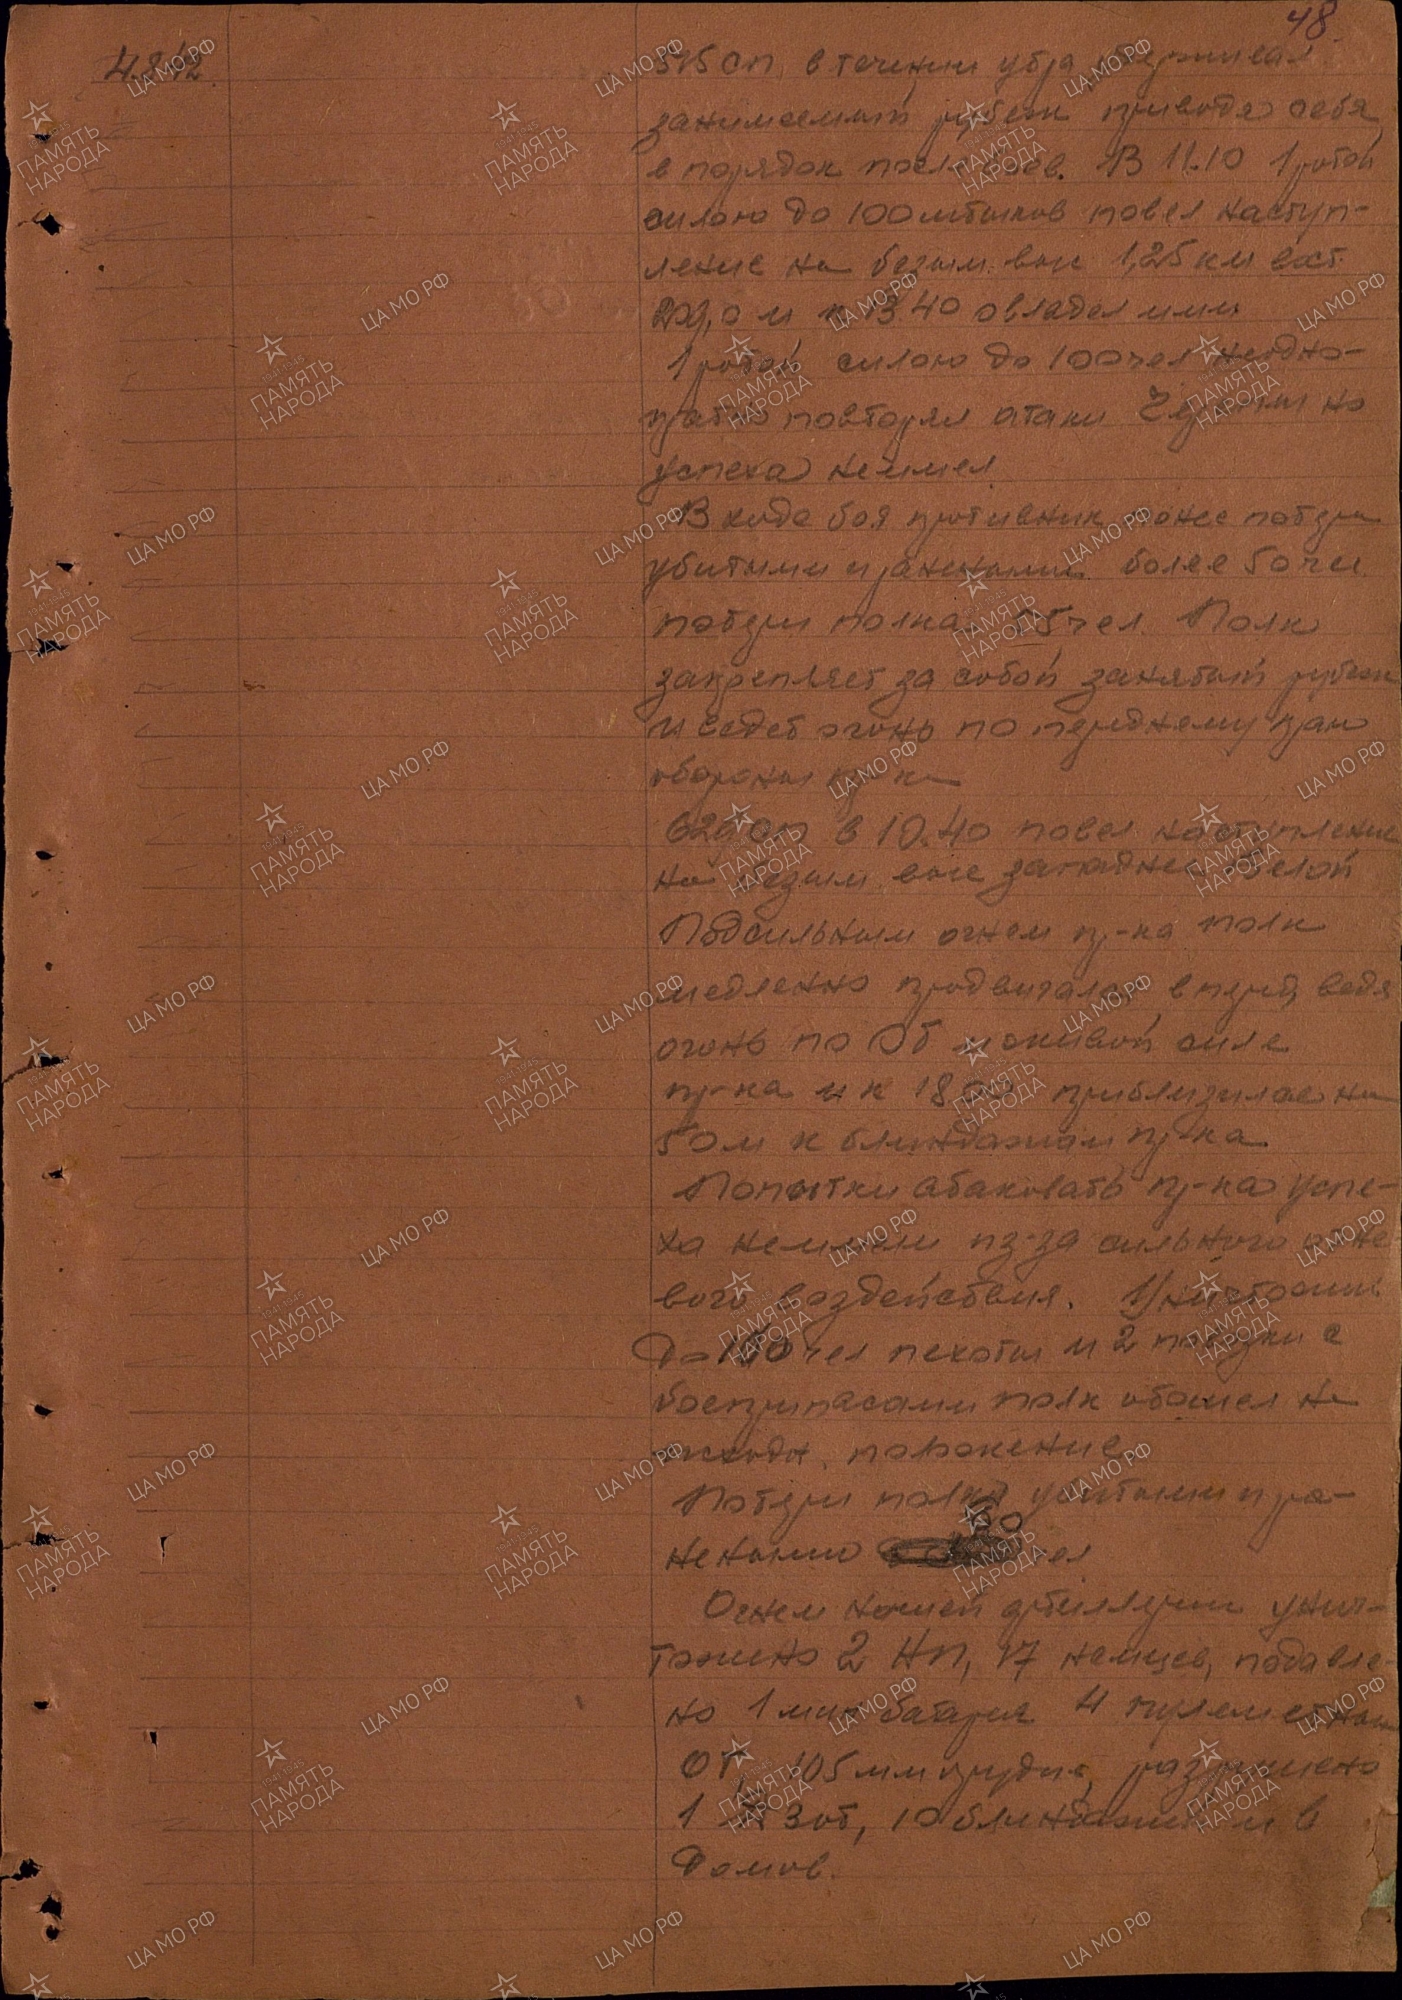 48
4.8.42
515 сп в течении утра удерживал
занимаемый рубеж приводя себя
в порядок после боев. В 11.10 1 ротой
силою до 100 штыков повел наступ-
ление на безым. выс 1,25 км вост
209,0 и к 13.40 овладел ими
1 ротой силою до 100 чел неодно-
кратно повторял атаки но
успеха не имел
В ходе боя противник понес потери
убитыми и ранеными более 50 чел
потери полка 55 чел. Полк
закрепляет за собой занятый рубеж
и ведет огонь по переднему краю
обороны пр-ка
629 сп в 10.40 повел наступление
на безым. выс западнее Белой
Под сильным огнем пр-ка полк
медленно продвигался вперед, ведя
огонь по ОТ и живой силе
пр-ка и к 18.00 приблизился на
50 м к блиндажам пр-ка
Попытки атаковать пр-ка успе-
ха не имели из-за сильного огне
вого воздействия. Уничтожив
до 100 чел пехоты и 2 повозки с
боеприпасами полк отошел на
исходн. положение
Потери полка убитыми и ра-
неными 60 чел
Огнем нашей артиллерии унич-
тожено 2 НП, 17 немцев, подавле-
но 1 мин батарея 4 пулеметных
ОТ, 105 мм орудие, разрушено
1 ДЗОТ, 10 блиндажей и 6
домов.